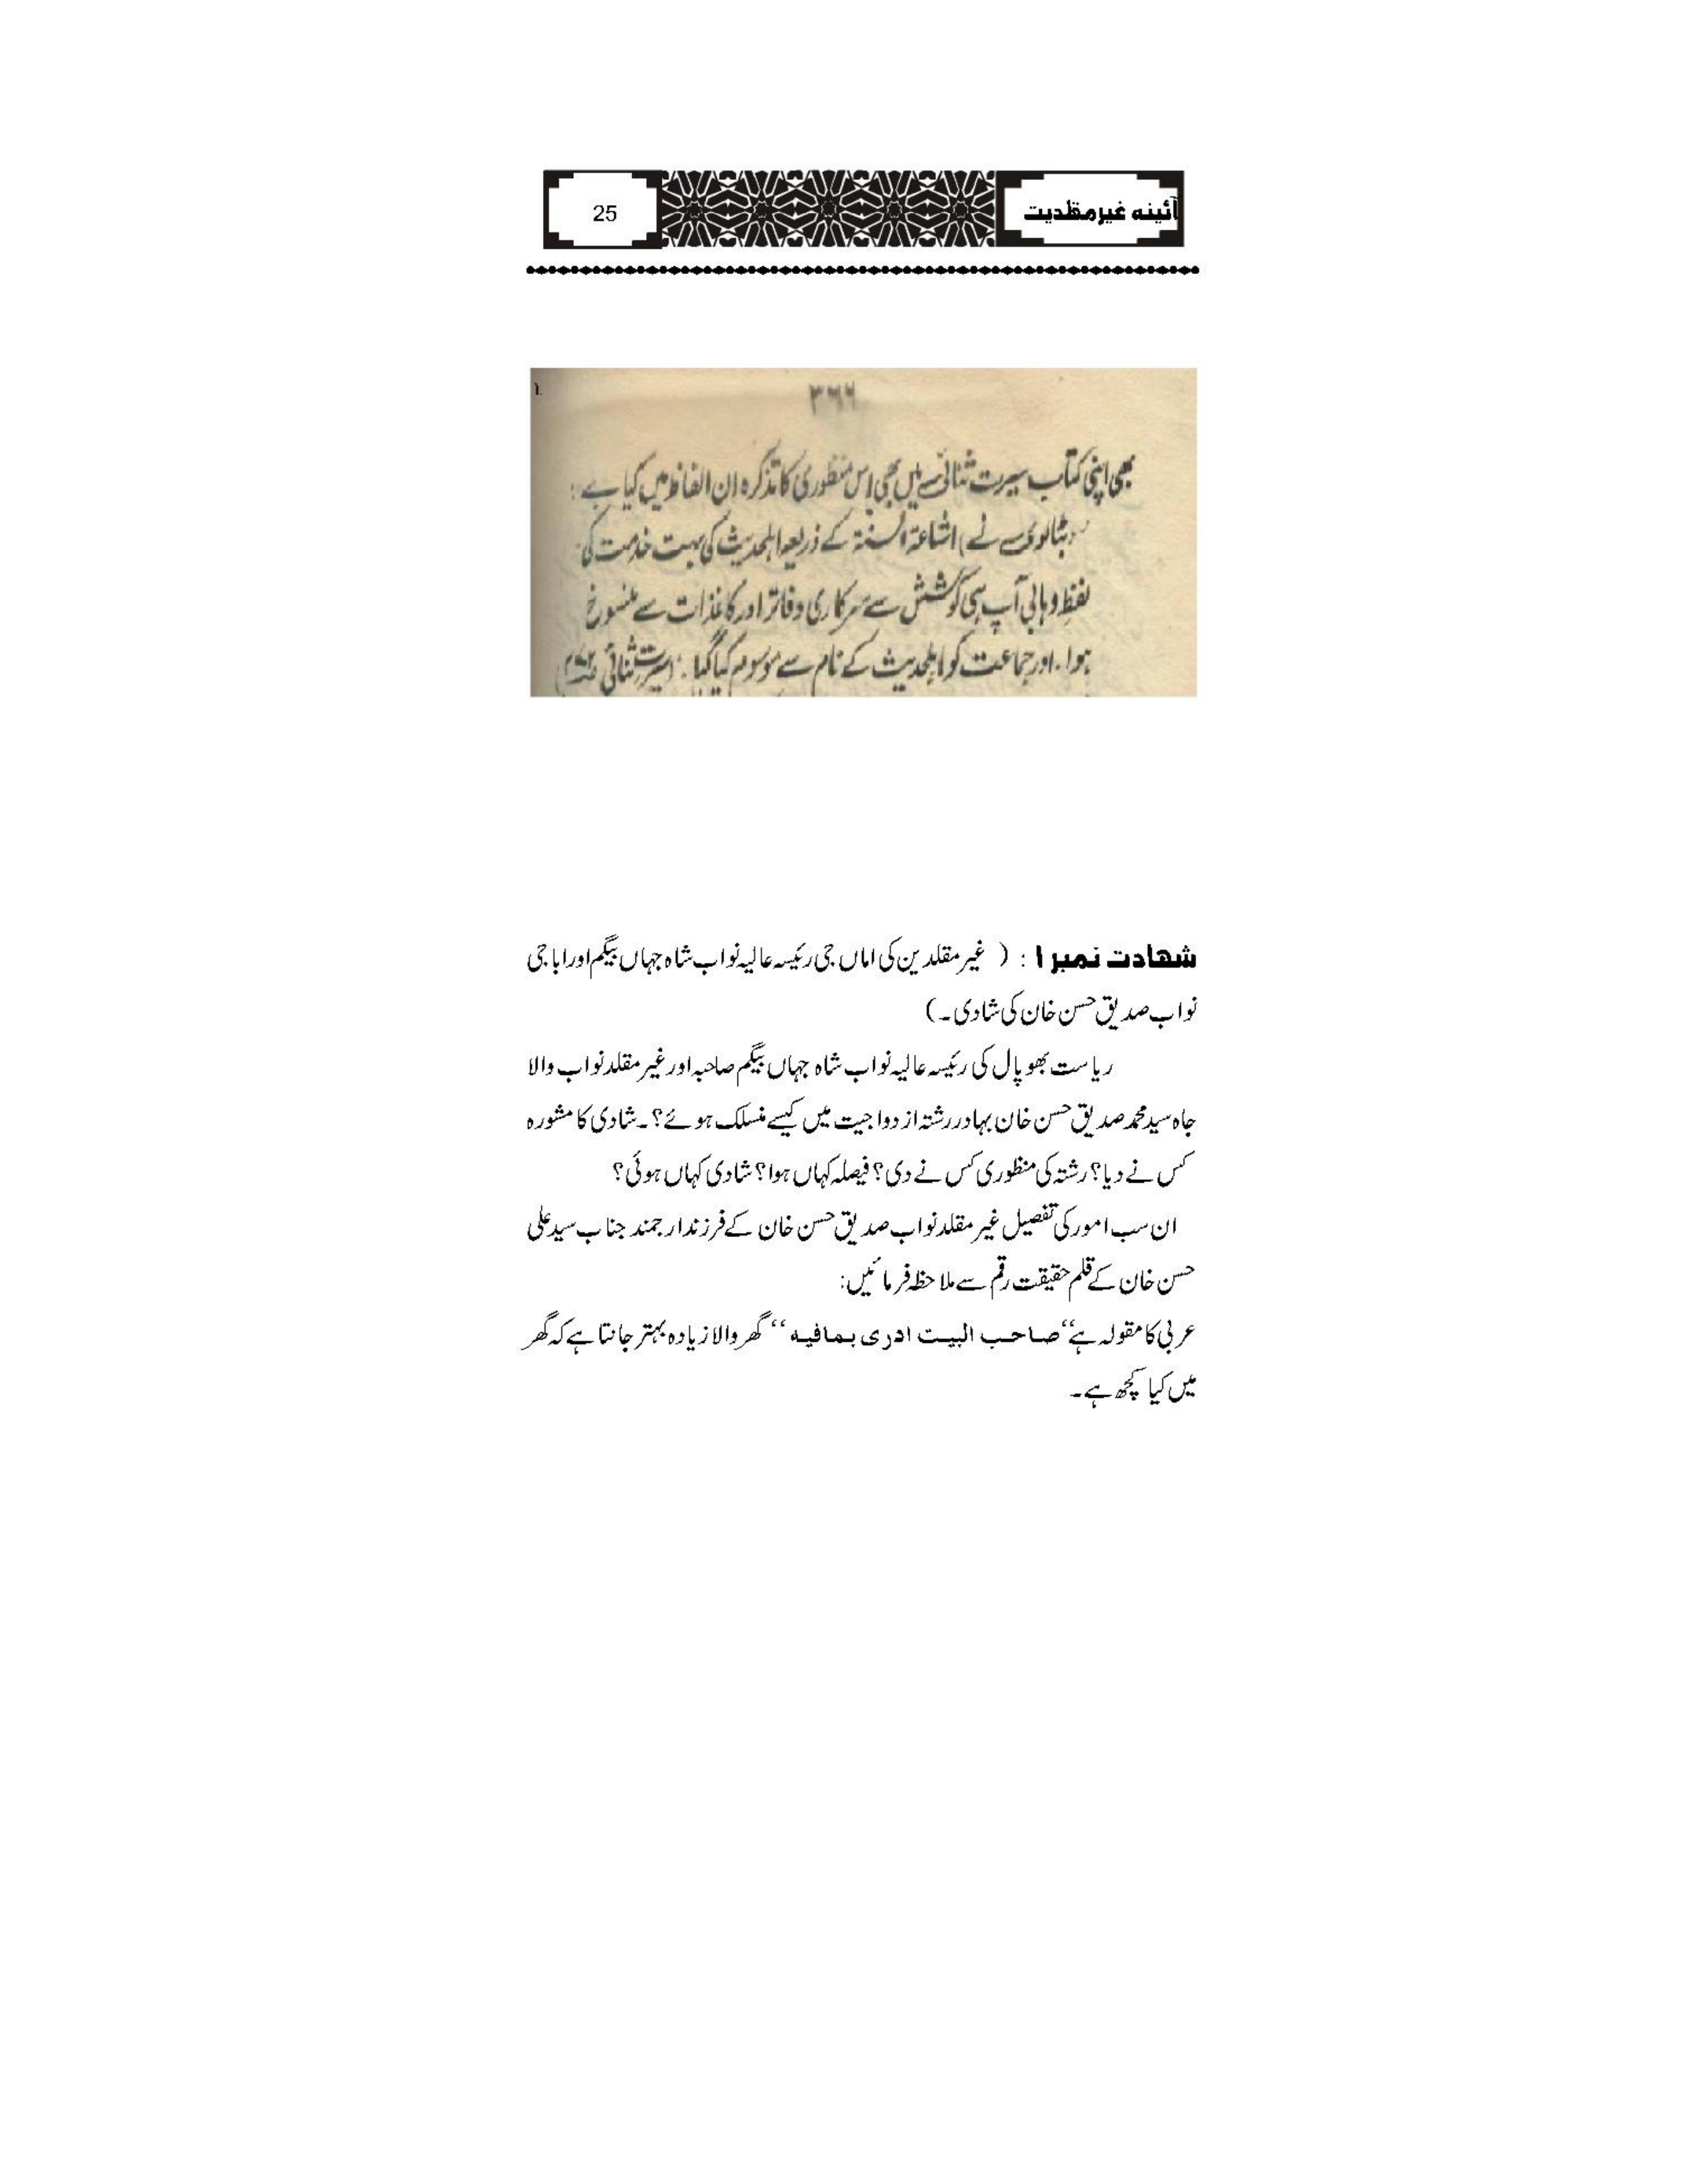 آئینہ غیرمقلدیت
25
۳۶۶
بھی اپنی کتاب سیرت ثنائی میں بھی اس منظوری کا تذکرہ ان الفاظ میں کیا ہے:
(بٹالوی نے) اشاعۃ السنۃ کے ذریعہ اہلحدیث کی بہت خدمت کی
لفظ وہابی آپ ہی کوشش سے سرکاری دفاتر اور کاغذات سے منسوخ
ہوا۔ اور جماعت کو اہلحدیث کے نام سے موسوم کیا گیا۔ (سیرت ثنائی
شھادت نمبر ۱ : ( غیرمقلدین کی اماں جی رئیسہ عالیہ نواب شاہ جہاں بیگم اور ابا جی
نواب صدیق حسن خان کی شادی۔)
ریاست بھوپال کی رئیسہ عالیہ نواب شاہ جہاں بیگم صاحبہ اور غیرمقلد نواب والا
جاہ سید محمد صدیق حسن خان بہادر رشتہ ازدواجیت میں کیسے منسلک ہوئے؟۔ شادی کا مشورہ
کس نے دیا؟ رشتہ کی منظوری کس نے دی؟ فیصلہ کہاں ہوا؟ شادی کہاں ہوئی؟
ان سب امور کی تفصیل غیر مقلد نواب صدیق حسن خان کے فرزند ارجمند جناب سید علی
حسن خان کے قلم حقیقت رقم سے ملاحظہ فرمائیں:
عربی کا مقولہ ہے ‘‘صاحب البیت ادری بمافیه ’’ گھر والا زیادہ بہتر جانتا ہے کہ گھر
میں کیا کچھ ہے۔